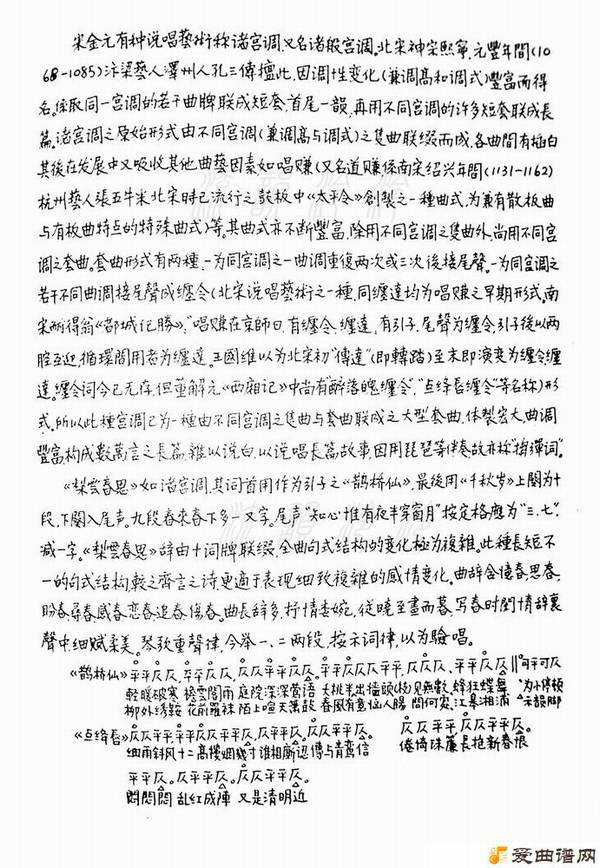 宋金元有种说唱藝術称諸宫调,又名諸般宫调。北宋神宗熙寧、元豐年間(10
68-1085)汴梁藝人澤州人孔三傳擅此,因调性变化(兼调高和调式)豐富而得
名。係取同一宫调的若干曲牌联成短套,首尾一韻,再用不同宫调的许多短套联成長
篇。諸宫调之原始形式由不同宫调(兼调高与调式)之隻曲联缀而成,各曲間有插白
其後在发展中又吸收其他曲藝因素如唱赚(又名道赚係南宋绍兴年間(1131-1162)
杭州藝人張五牛采北宋時已流行之鼓板中《太平令》創製之一種曲式,为兼有散板曲
与有板曲特点的特殊曲式)等。其曲式亦不断豐富,除用不同宫调之隻曲外,尚用不同宫
调之套曲。套曲形式有两種,一为同宫调之一曲调重復两次或三次後接尾聲。一为同宫调之
若干不同曲调接尾聲成缠令(北宋说唱藝術之一種,同缠達均为唱赚之早期形式,南
宋耐得翁《都城记勝》:"唱赚在京師日,有缠令、缠達,有引子、尾聲为缠令,引子後以两
腔互迎,循環間用者为缠達。王國维以为北宋初"傳達"(即轉踏)至末即演变为缠令缠
達。缠令词今已无存,但董解元《西厢记》中尚有"醉落魄缠令","点绛唇缠令"等名称)形
式。所以此種宫调已为一種由不同宫调之隻曲与套曲联成之大型套曲,体製宏大,曲调
豐富,构成數萬言之長篇,雜以说白,以说唱長篇故事,因用琵琶等伴奏故亦称"搊彈词"。
《梨雲春思》如諸宫调,其词首用作为引子之《鹊桥仙》,最後用《千秋岁》上闋为十
段,下闋入尾声。九段春来春下多一又字。尾声"知心惟有夜半窗前月"按定格應为"三、七",
减一字。《梨雲春思》辞由十词牌联缀,全曲句式结构的变化極为複雜。此種長短不
一的句式结构,較之齊言之诗,更適于表现细致複雜的感情变化。曲辞含憶春、思春、
盼春、尋春、感春、恋春、追春、傷春。曲長辞多,抒情委婉,從曉至晝而暮,写春时閨情辞裹
聲中,细赋柔美。琴歌重聲律,今举一、二两段,按示词律,以为驗唱。
《鹊桥仙》平平仄仄,平平仄仄,仄仄平平仄仄。平平仄仄仄平平,仄仄仄、平平仄仄‖間平可仄
輕暖破寒 檐雲閣雨 庭院深深鶯语 夭桃半出牆頭 见無數、蜂狂蝶舞 为小停顿
柳外绣鞍 花前羅袜 陌上喧天簫鼓 春風有意恼人腸 問何處、江皋湘浦
《点绛唇》仄仄平平,仄平平仄平平仄。仄平平仄,仄仄平平仄。 仄仄平平,仄仄平平仄。
细雨斜风十二高樓烟幾寸誰相廝 傳与青鸞信 倦倚珠簾長抢新春恨
平平仄。仄平平仄。仄仄平平仄。
悶悶悶 乱红成陣 又是清明近
爱曲谱网